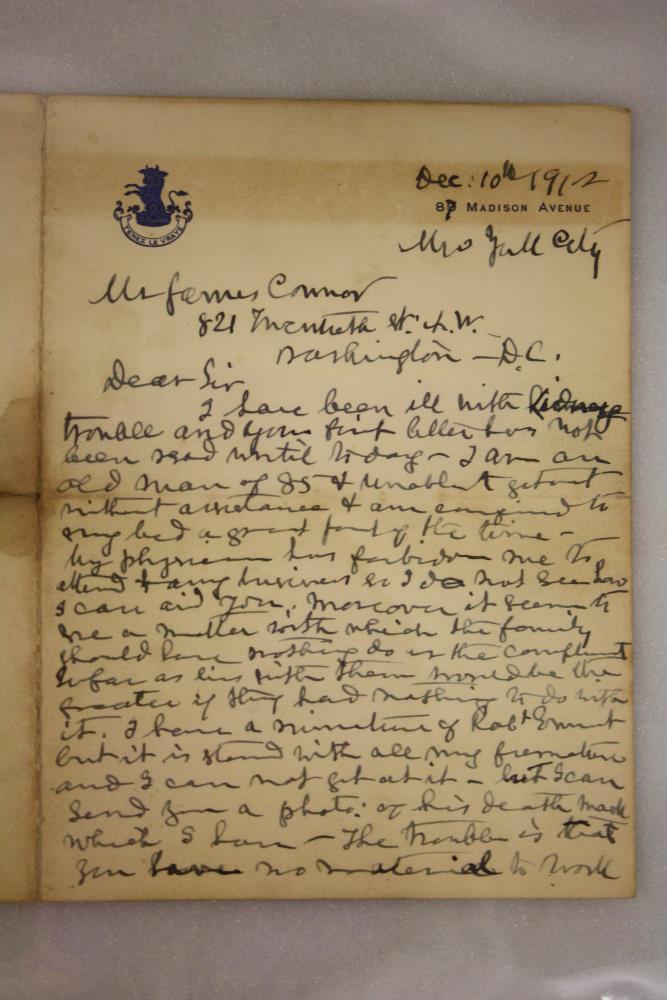 Dec: 10th 1912
89 MADISON AVENUE
TENEZ LE VRAYE
New York City
Mr James Connor
821 Twentieth St. N.W.
Washington — D.C.
Dear Sir
I have been ill with kidney
trouble and your first letter has not
been read until to day — I am an
old man of 85 & unable to get out
without assistance & am confined to
my bed a great part of the time —
My physician has forbidden me to
attend to any business so I do not see how
I can aid you. Moreover it seems to
me a matter with which the family
should have nothing to do as the compliment
so far as lies with them would be the
greater if they had nothing to do with
it. I have a miniature of Robt Emmet
but it is stored with all my furniture
and I can not get at it — but I can
send you a photo: of his death mask
which I have — The trouble is that
you have no material to work